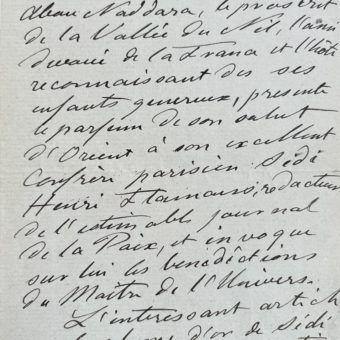 Abou Naddara, le proscrit
de la Vallée du Nil, l'ami
dévoué de la France et l'hôte
reconnaissant des ses
enfants genereux, presente
le parfum de son salut
d'Orient à son excellent
Confrère parisien Sidi
Henri rédacteur
de l'estimable journal
de la Paix, et invoque
sur lui les bénédictions
du Maître de l'Univers.
L'interessant article
d'or de Sidi